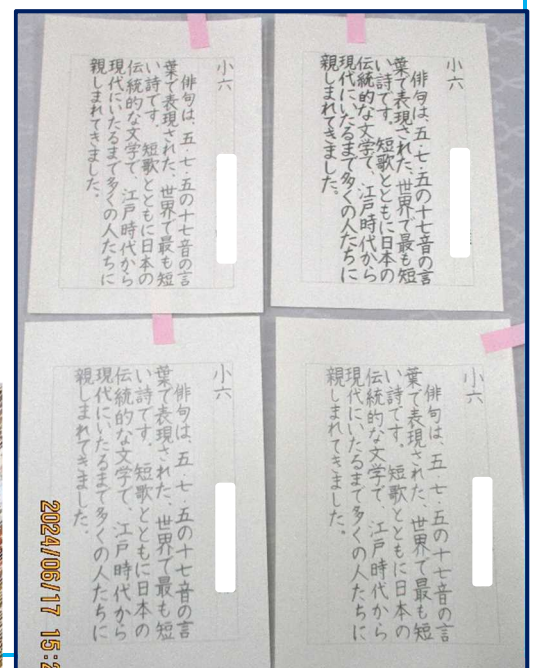 小六
俳句は、五・七・五の十七音の言
葉で表現された、世界で最も短
い詩です。短歌とともに日本の
伝統的な文学で、江戸時代から
現代にいたるまで多くの人たちに
親しまれてきました。
小六
俳句は、五・七・五の十七音の言
葉で表現された、世界で最も短
い詩です。短歌とともに日本の
伝統的な文学で、江戸時代から
現代にいたるまで多くの人たちに
親しまれてきました。
小六
俳句は、五・七・五の十七音の言
葉で表現された、世界で最も短
い詩です。短歌とともに日本の
伝統的な文学で、江戸時代から
現代にいたるまで多くの人たちに
親しまれてきました。
小六
俳句は、五・七・五の十七音の言
葉で表現された、世界で最も短
い詩です。短歌とともに日本の
伝統的な文学で、江戸時代から
現代にいたるまで多くの人たちに
親しまれてきました。
2024/06/17